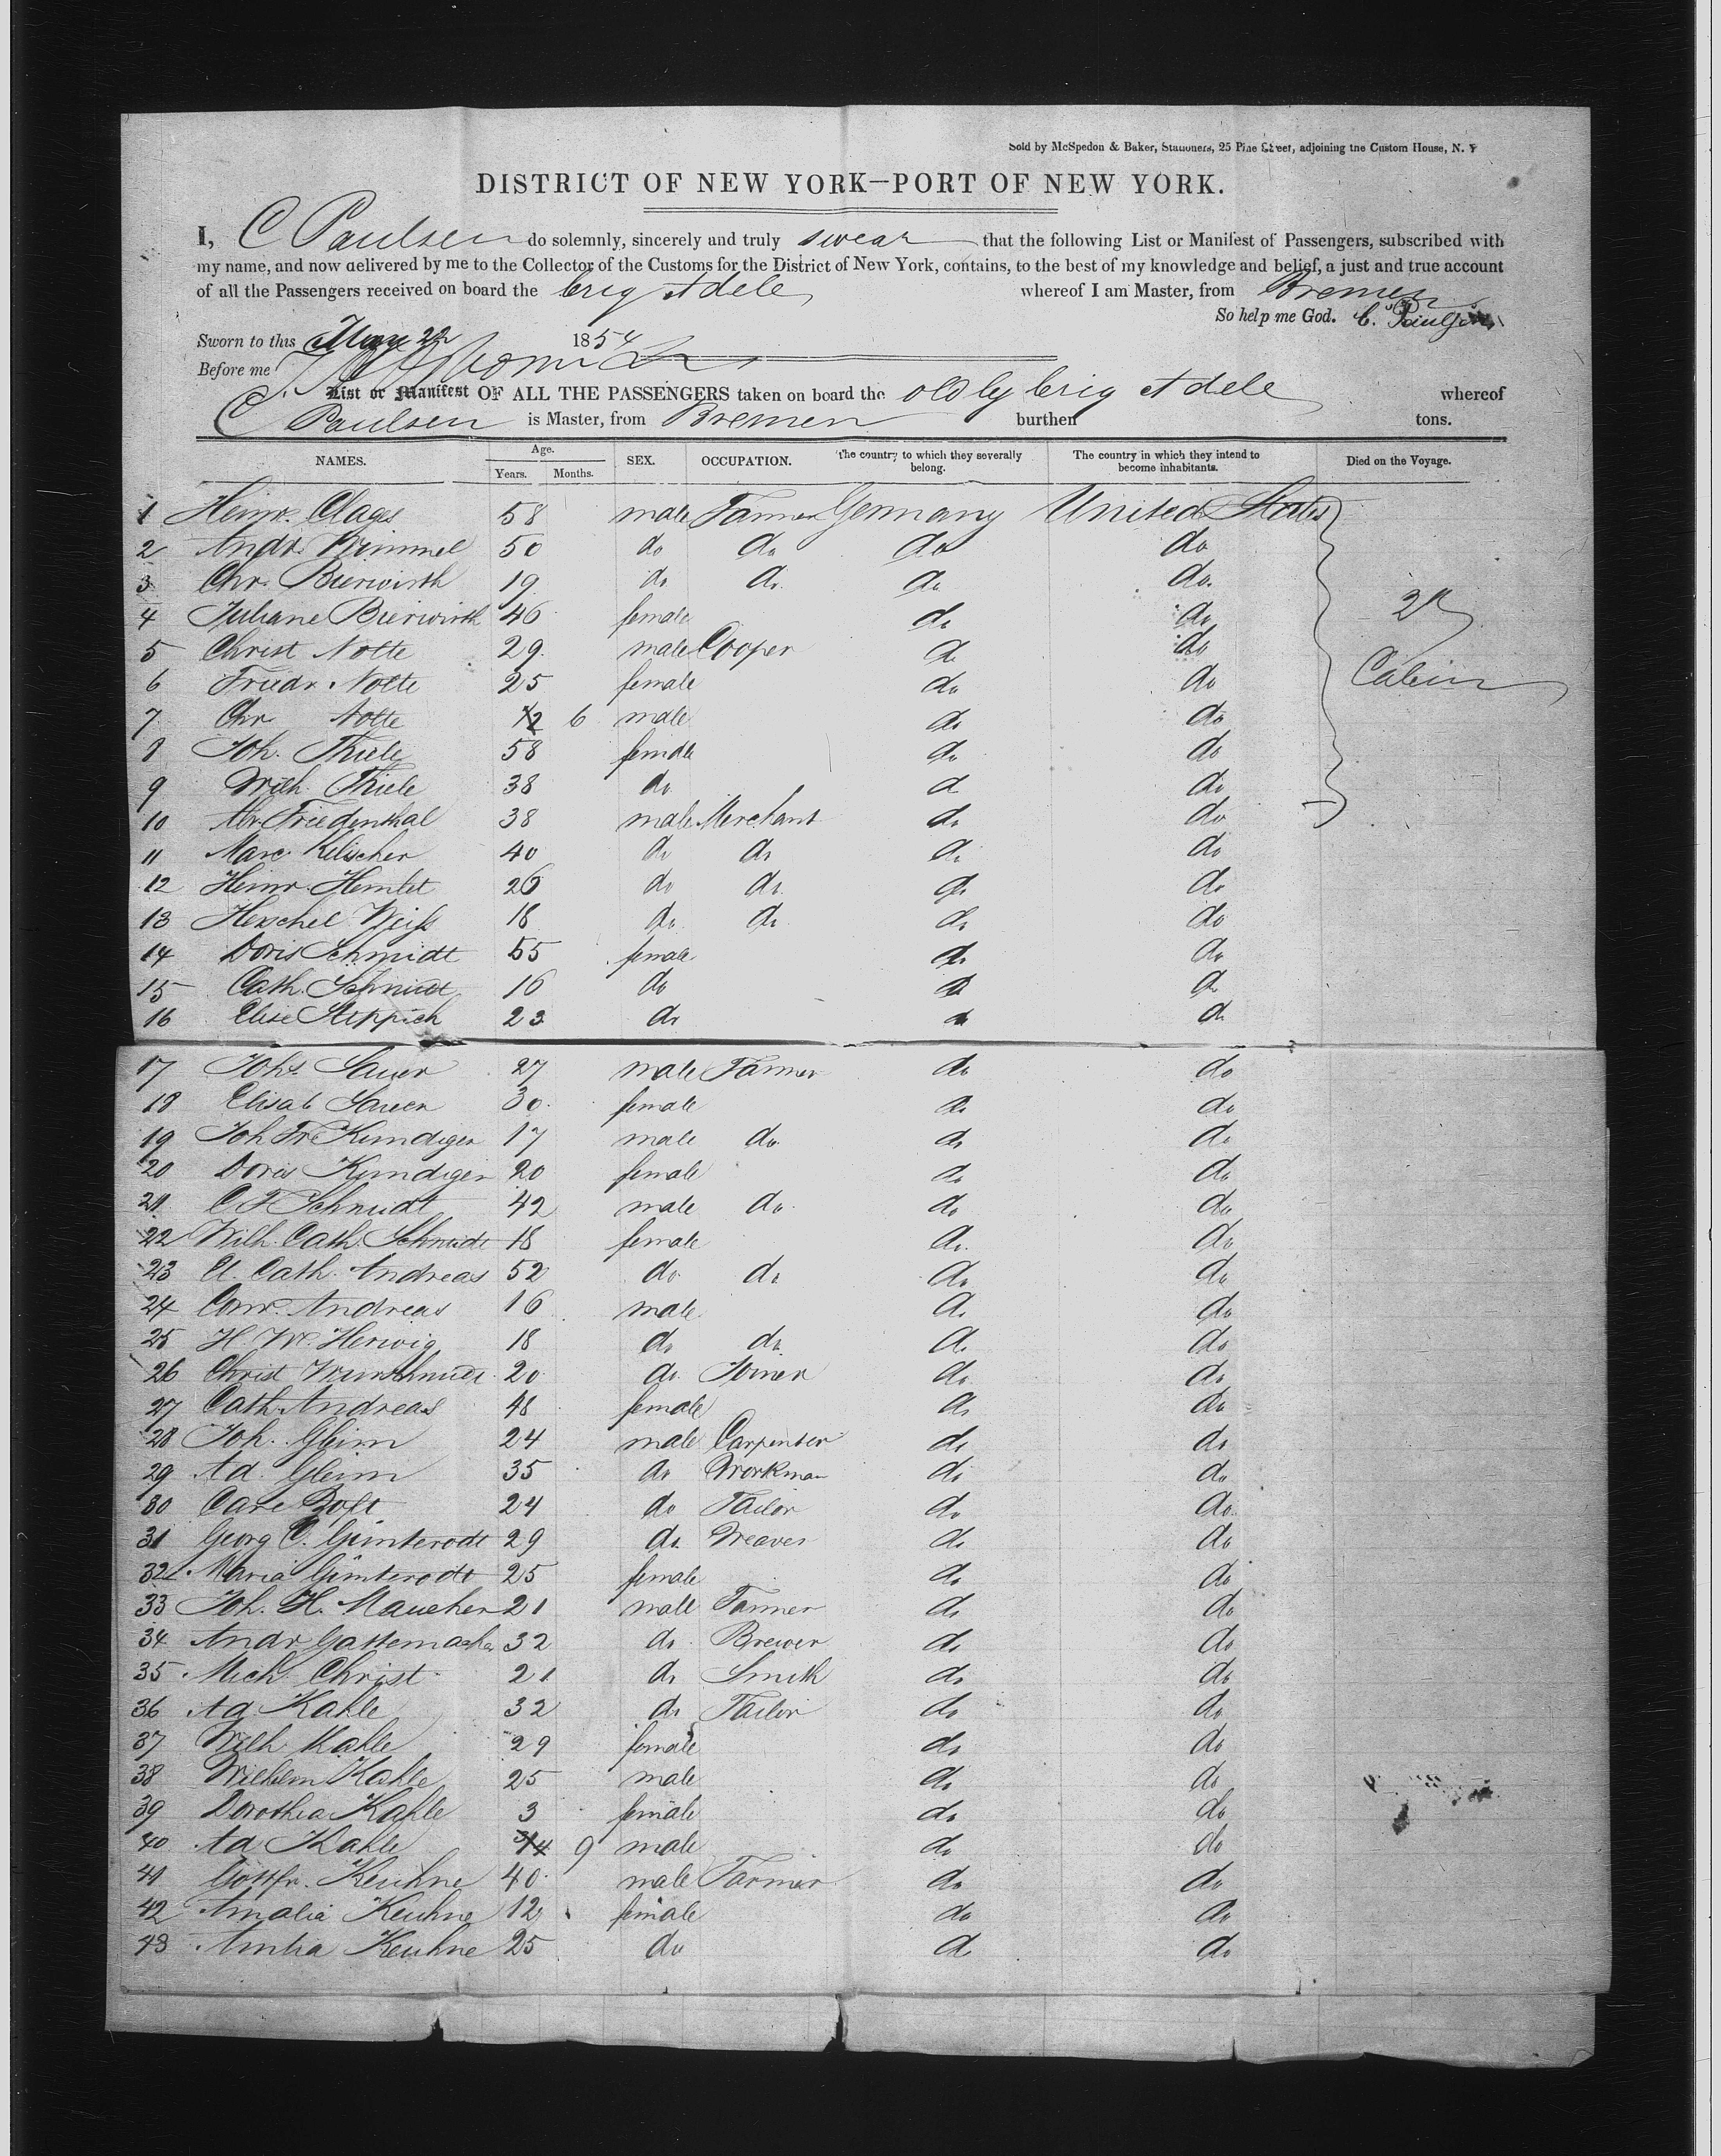 Sold by McSpedon & Baker, Stationers, 25 Pine Street, adjoining the Custom House, N. Y
DISTRICT OF NEW YORK—PORT OF NEW YORK.
I, C Paulsen do solemnly, sincerely and truly swear that the following List or Manifest of Passengers, subscribed with
my name, and now delivered by me to the Collector of the Customs for the District of New York, contains, to the best of my knowledge and belief, a just and true account
of all the Passengers received on board the brig Adele whereof I am Master, from Bremen
So help me God. C. Paulsen
Sworn to this May 22 1854
Before me
List or Manifest OF ALL THE PASSENGERS taken on board the brig Adele whereof
C Paulsen is Master, from Bremen burthen tons.
NAMES. Age. Years. Months. SEX. OCCUPATION. The country to which they severally belong. The country in which they intend to become inhabitants. Died on the Voyage.
1 Heinr. Clages 58 male Farmer Germany United States
2 Andr. Brimmel 50 do do do do
3 Chr. Bierwirth 19 do do do do
4 Juliane Bierwirth 46 female do do
5 Christ Nolte 29 male Cooper do do
6 Friedr Nolte 25 female do do
7 Chr Nolte 6 male do do
8 Joh. Thiele 58 female do do
9 Wilh. Thiele 38 do do do
10 Abr Friedenthal 38 male Merchant do do
11 Marc. Kelischer 40 do do do do
12 Heinr. Hemlet 26 do do do do
13 Herschel Weiss 18 do do do do
14 Doris Schmidt 55 female do do
15 Cath. Schmidt 16 do do do
16 Elise Steppich 23 do do do
2d Cabin
17 Johs Sauer 27 male Farmer do do
18 Elisab Sauer 30 female do do
19 Joh Fr Kundiger 17 male do do do
20 Doris Kundiger 20 female do do
21 C F Schmidt 42 male do do do
22 Wilh. Cath. Schmidt 18 female do do
23 El. Cath. Andreas 52 do do do do
24 Conr. Andreas 16 male do do
25 H W. Herwig 18 do do do do
26 Christ 20 do Joiner do do
27 Cath. Andreas 48 female do do
28 Joh. Gleim 24 male Carpenter do do
29 Ad. Gleim 35 do Workman do do
30 Carl Zoft 24 do Tailor do do
31 Georg C. Gunterodt 29 do Weaver do do
32 Maria Gunterodt 25 female do do
33 Joh. H. Maucher 21 male Farmer do do
34 Andr Gastemacher 32 do Brewer do do
35 Mich. Christ 21 do Smith do do
36 Ad Kahle 32 do Tailor do do
37 Wilh Kahle 29 female do do
38 Wilhelm Kahle 25 male do do
39 Dorothea Kahle 3 female do do
40 Ad Kahle 9 male do do
41 Gottfr. Keuhne 40 male Farmer do do
42 Amalia Keuhne 12 female do do
43 Keuhne 25 do do do